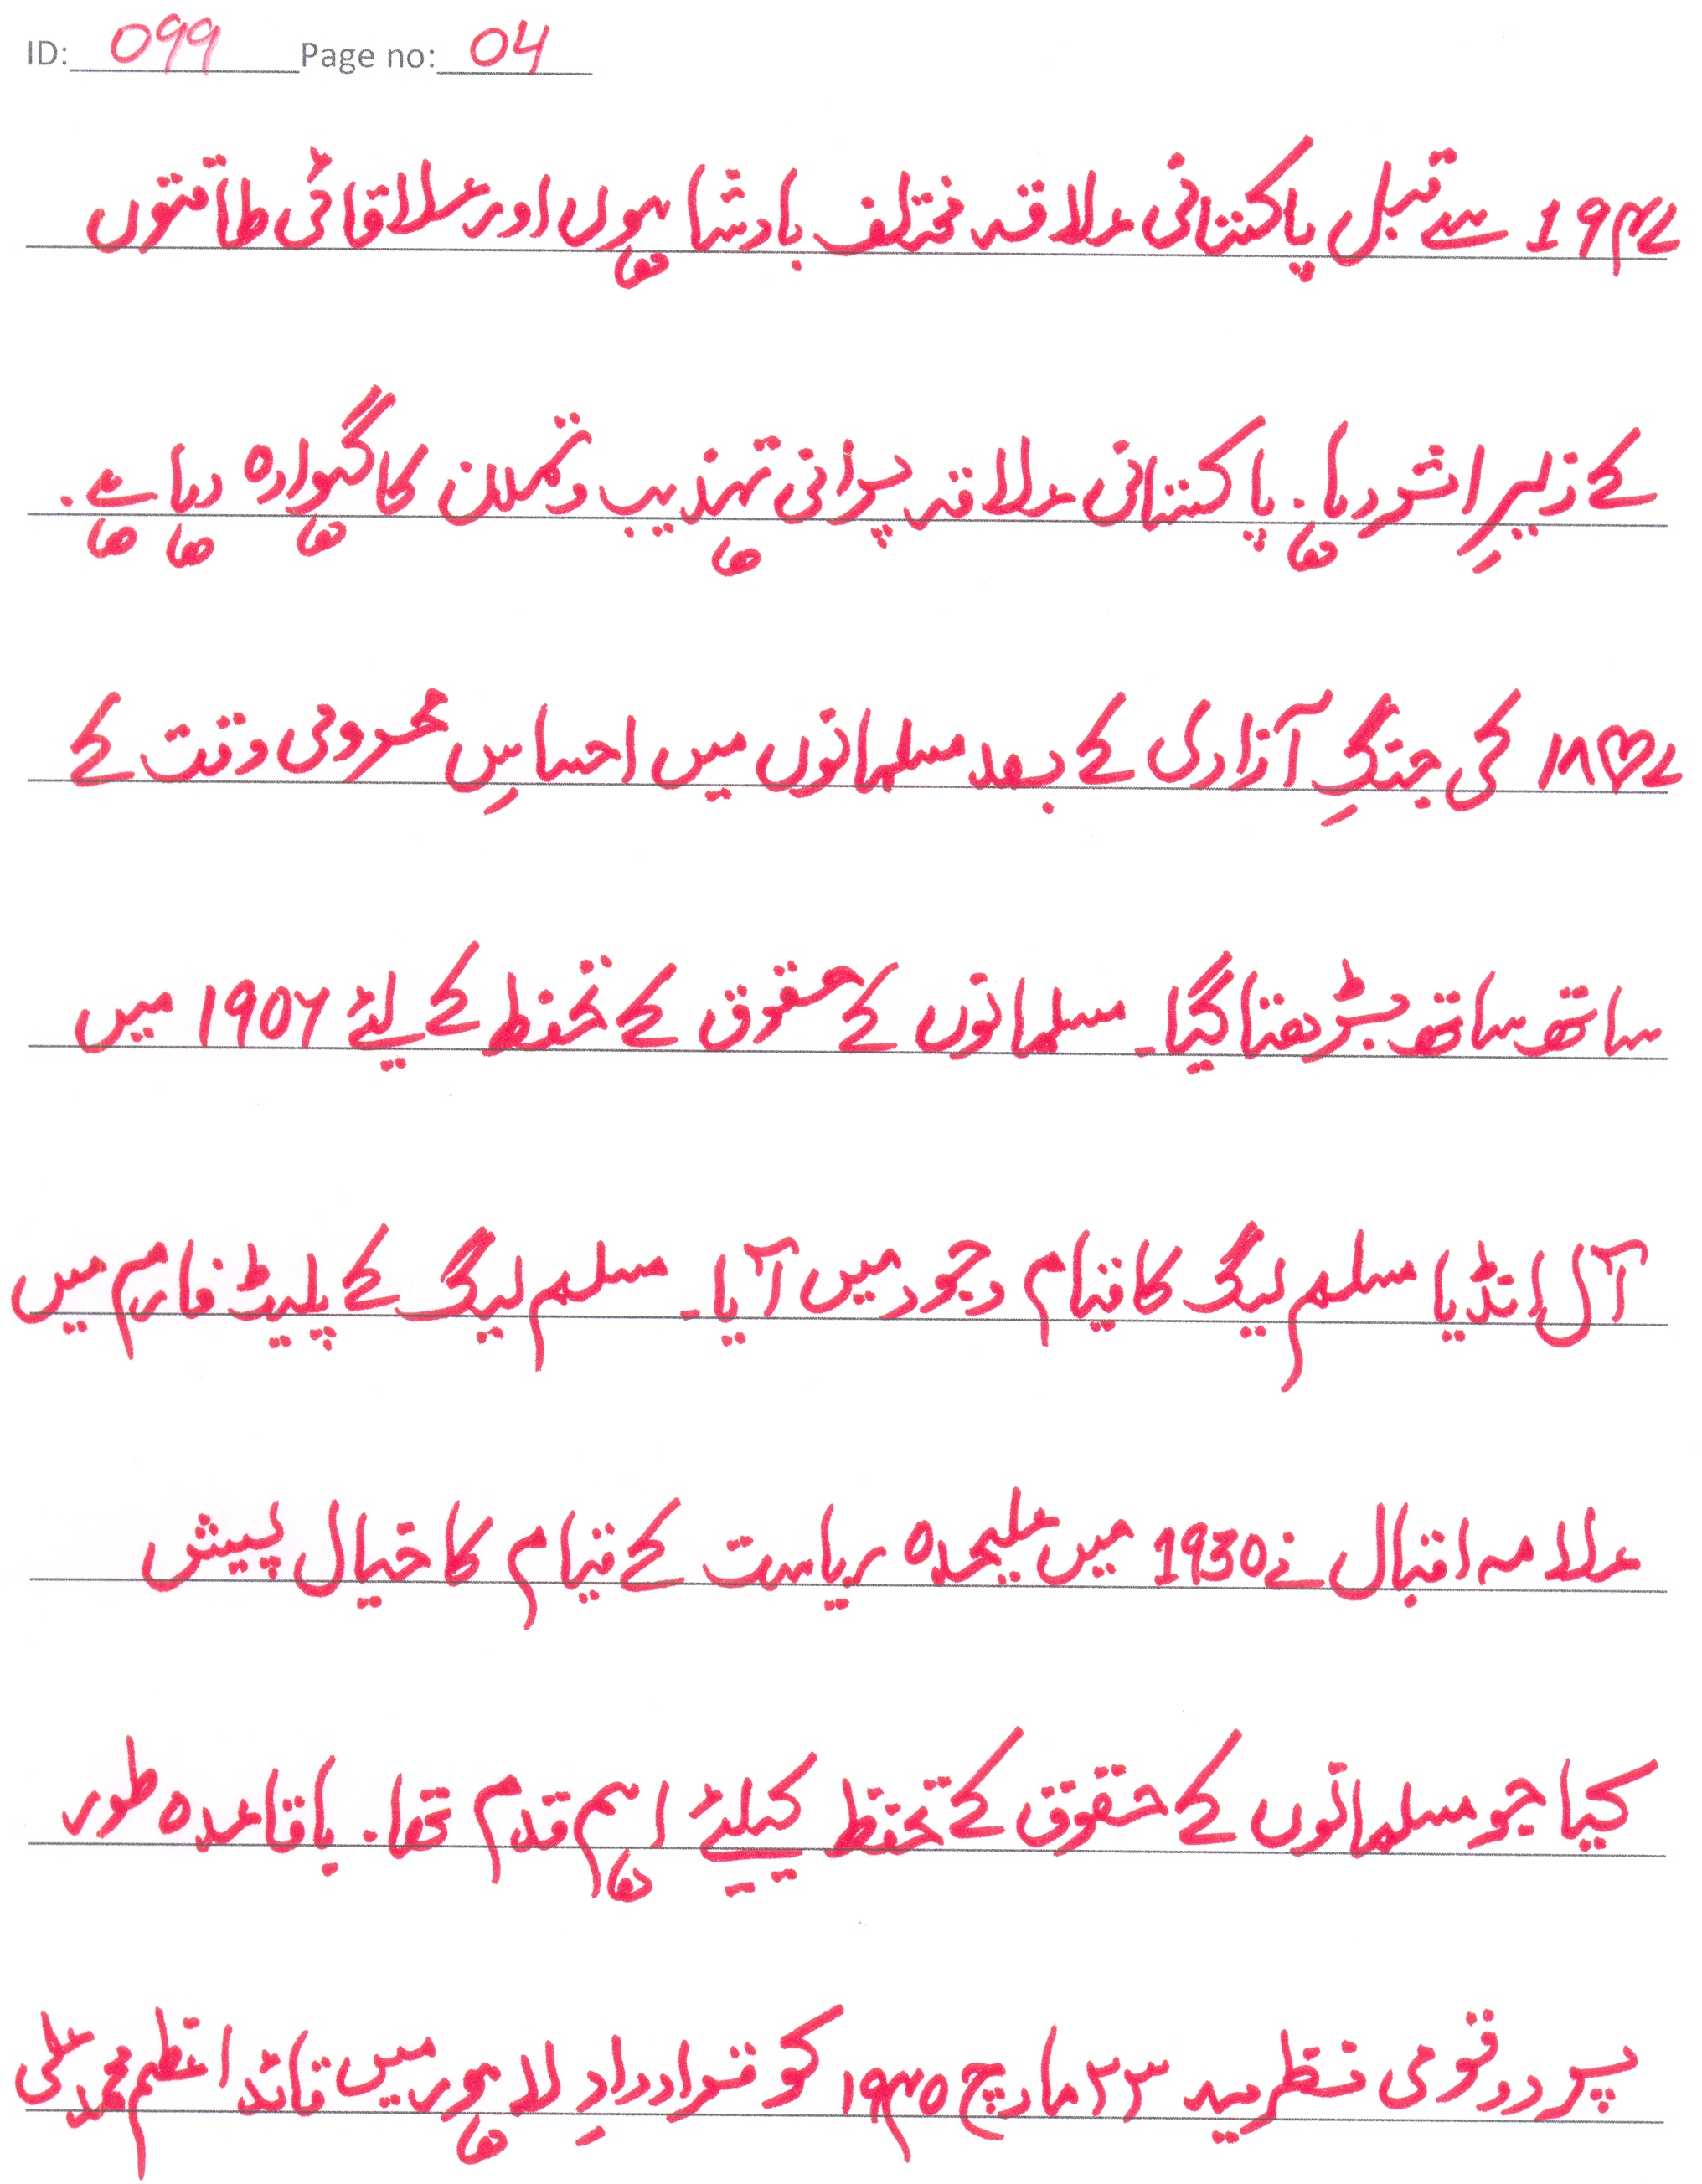 ID: 099 Page no: 04
۱۹۴۷ سے قبل پاکستانی علاقہ مختلف بادشاہوں اور علاقائی طاقتوں
کے زیرِ اثر رہا۔ پاکستانی علاقہ پرانی تہذیب و تمدن کا گہوارہ رہا ہے۔
۱۸۵۷ کی جنگِ آزادی کے بعد مسلمانوں میں احساسِ محرومی وقت کے
ساتھ ساتھ بڑھتا گیا۔ مسلمانوں کے حقوق کے تحفظ کے لئے ۱۹۰۶ میں
آل انڈیا مسلم لیگ کا قیام وجود میں آیا۔ مسلم لیگ کے پلیٹ فارم میں
علامہ اقبال نے 1930 میں علیحدہ ریاست کے قیام کا خیال پیش
کیا جو مسلمانوں کے حقوق کے تحفظ کیلئے اہم قدم تھا۔ باقاعدہ طور
پر دو قومی نظریہ ۲۳ مارچ ۱۹۴۰ کو قراردادِ لاہور میں قائد اعظم محمد علی